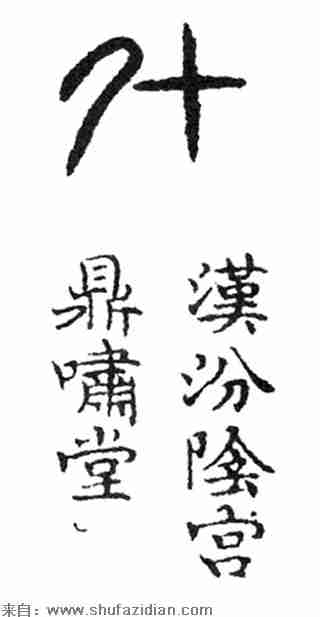 漢汾陰宫
鼎嘯堂
来自：www.shufazidian.com